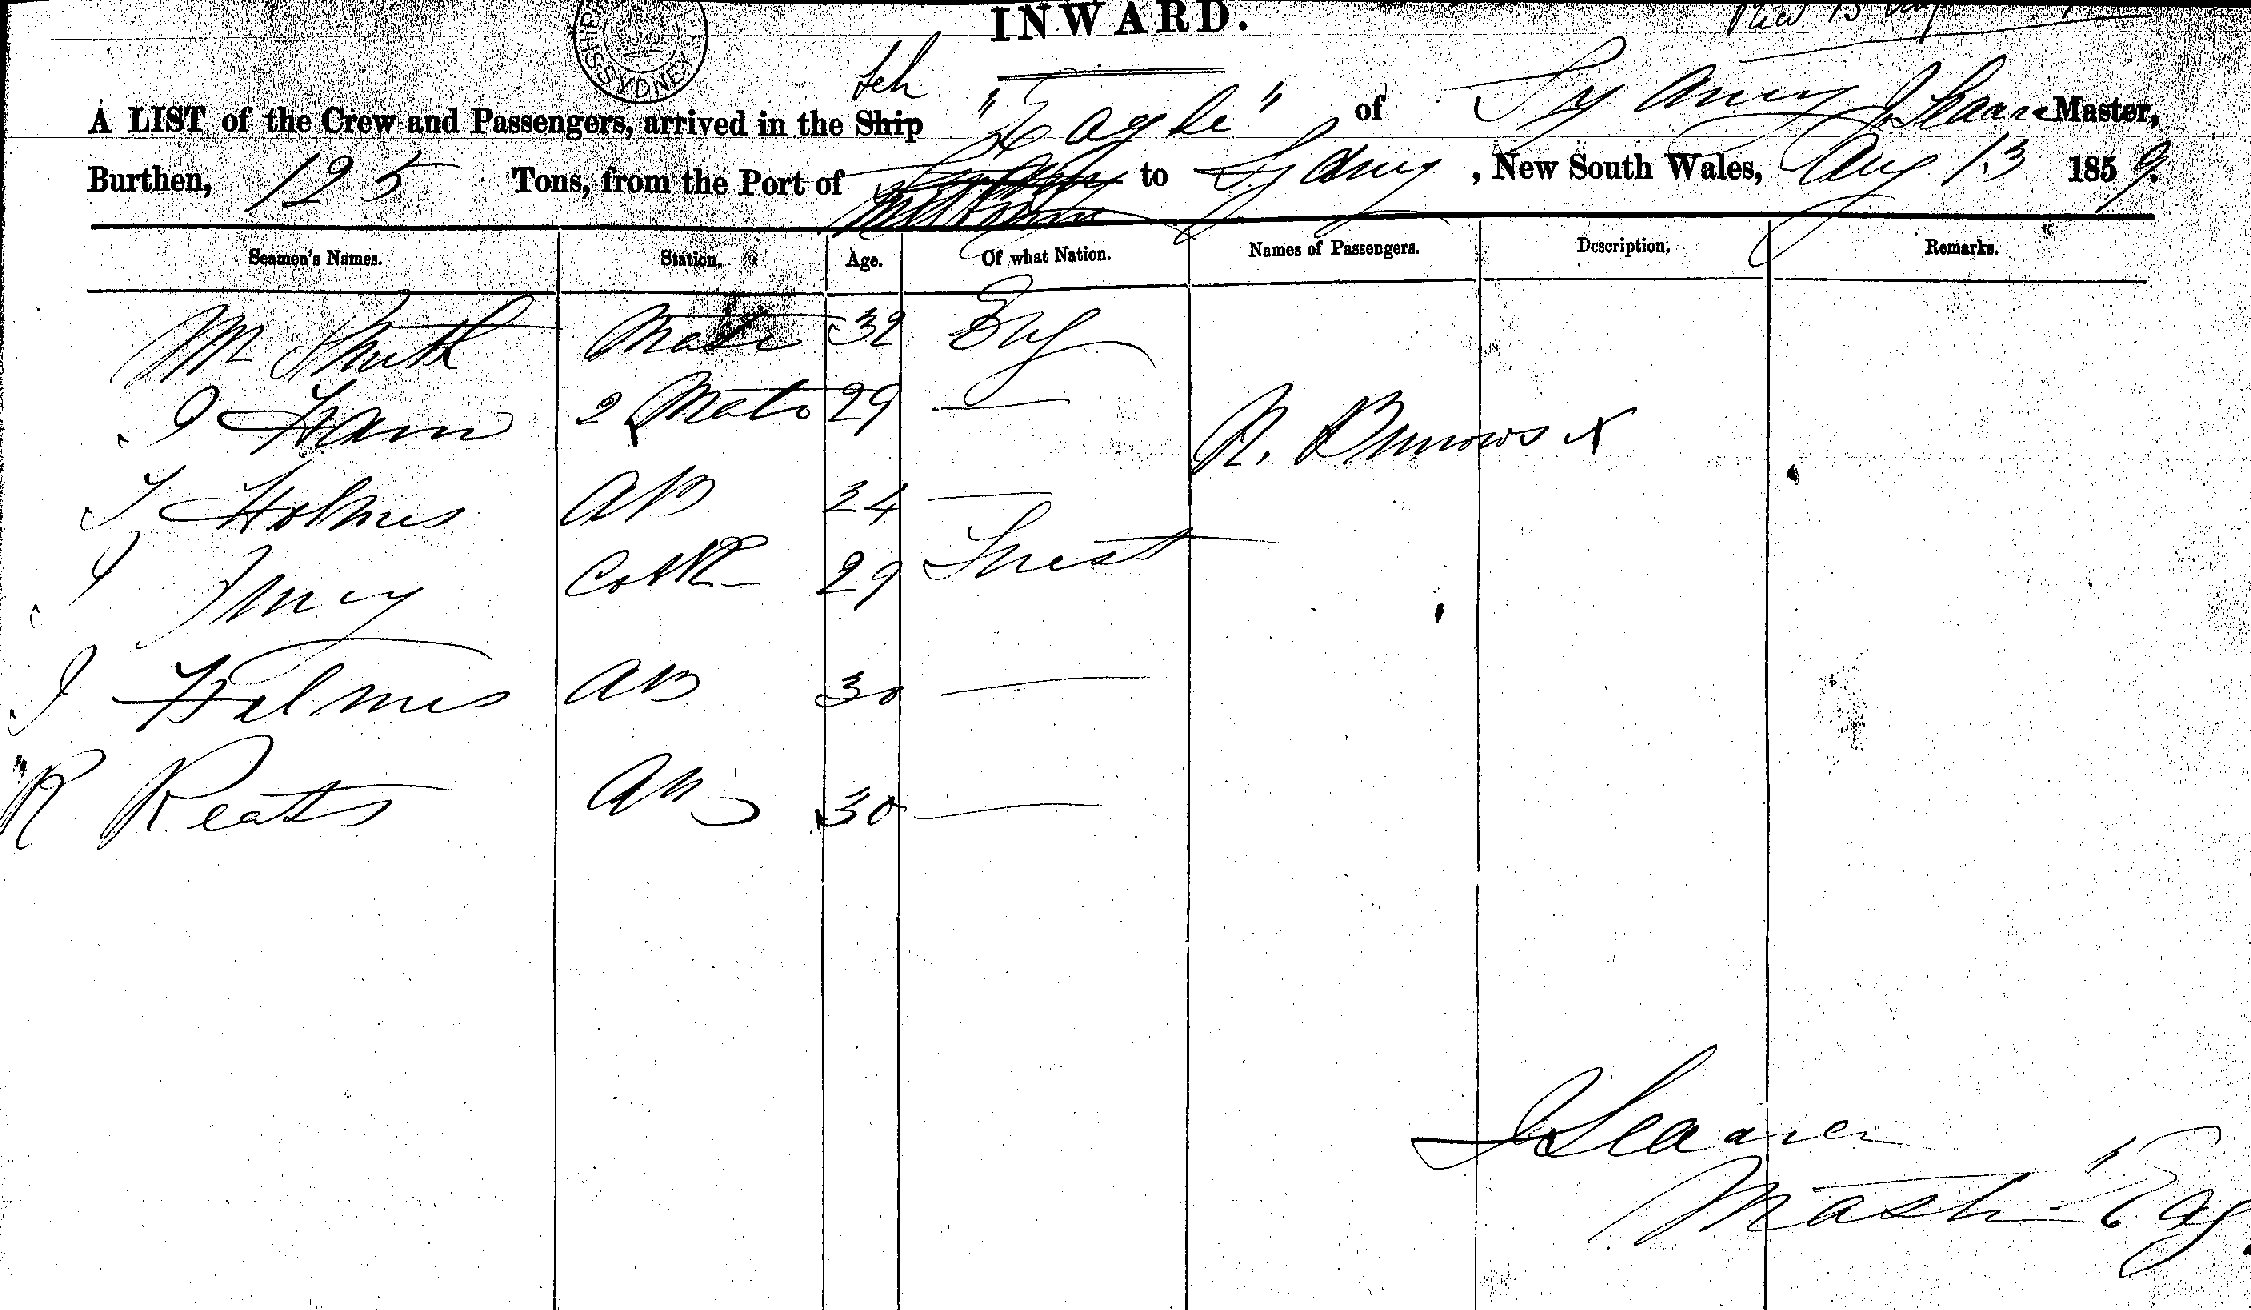 INWARD.
SYDNEY
Sch
A LIST of the Crew and Passengers, arrived in the Ship "Eagle" of Sydney Master,
Burthen, 125 Tons, from the Port of to Sydney, New South Wales, Aug 13 1859.
Seamen's Names. Station. Age. Of what Nation. Names of Passengers. Description, Remarks.
M Smith Mate 32 Eng
2 Mate 29 —
R. Burrows x
T Holmes AB 24 —
Cook 29
J Holmes AB 30 —
R Keats AB 30 —